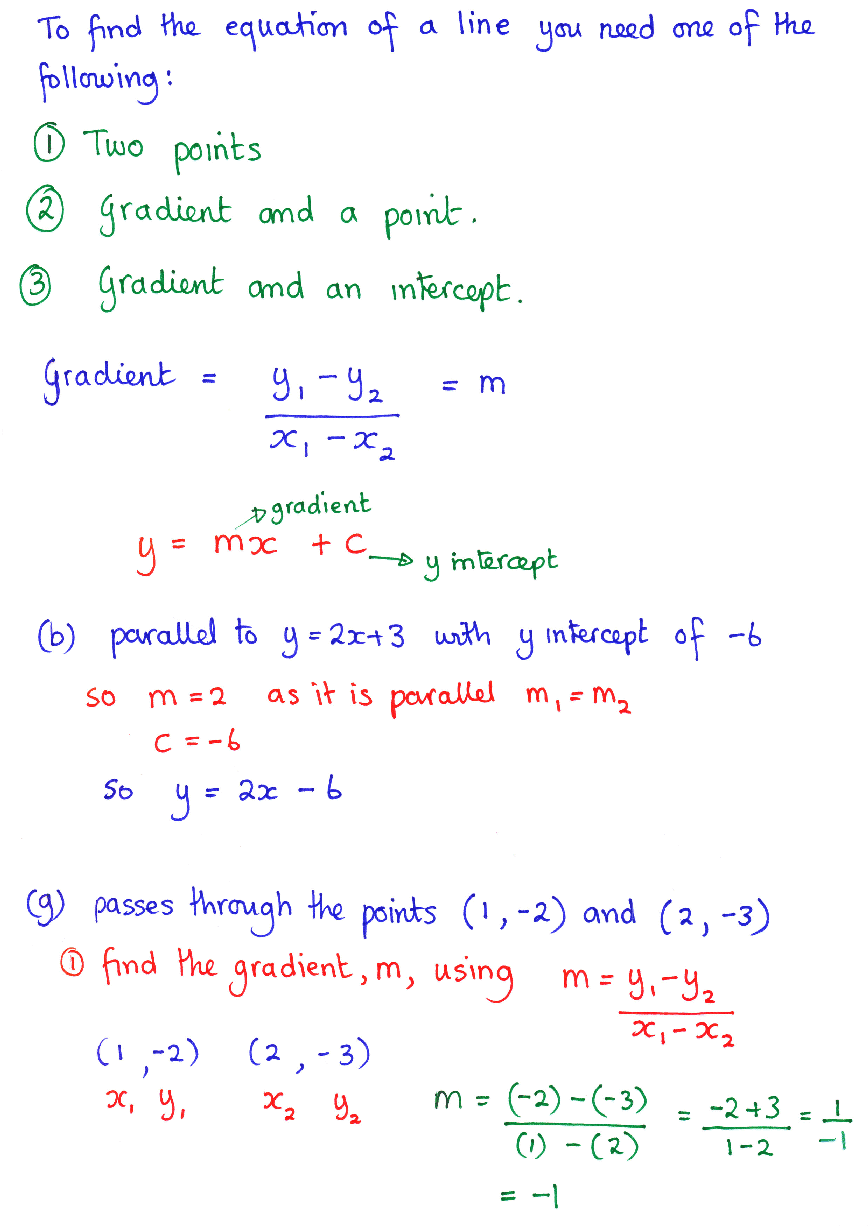 To find the equation of a line you need one of the
following:
① Two points
② Gradient and a point.
③ Gradient and an intercept.
Gradient = y₁ - y₂ / x₁ - x₂ = m
gradient
y = mx + c → y intercept
(b) parallel to y = 2x+3 with y intercept of -6
so m = 2 as it is parallel m₁ = m₂
c = -6
so y = 2x - 6
(g) passes through the points (1, -2) and (2, -3)
① find the gradient, m, using m = y₁ - y₂ / x₁ - x₂
(1, -2) (2, -3)
x₁ y₁ x₂ y₂ m = (-2) - (-3) / (1) - (2) = -2+3 / 1-2 = 1 / -1
= -1